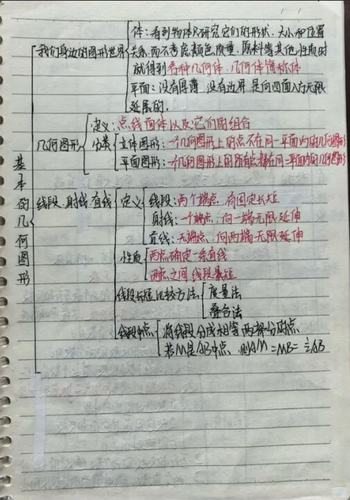 体:看到物体只研究它们的形状、大小和位置
我们身边的图形世界
关系,而不考虑颜色、质量、原料等其他性质时
就得到各种几何体,几何体简称体
平面:没有厚薄,没有边界,是向四面八方无限
延展的。
定义:点线面体以及它们的组合
几何图形
分类
立体图形:一个几何图形上的点不在同一平面内的几何图形
平面图形:一个几何图形上的所有点都在同一平面内的几何图形
基本的几何图形
线段、射线、直线
定义
线段:两个端点,有固定长短
射线:一个端点,向一端无限延伸
直线:无端点,向两端无限延伸
性质
两点确定一条直线
两点之间线段最短
线段长短比较方法
度量法
叠合法
线段中点
将线段分成相等两部分的点
若M是AB中点,则AM=MB=½AB